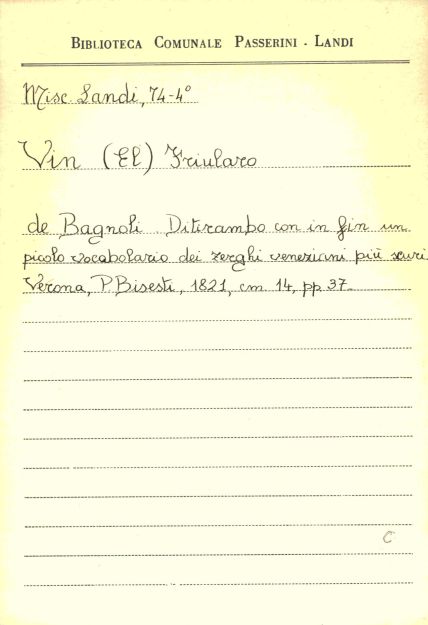 BIBLIOTECA COMUNALE PASSERINI - LANDI
Misc. Landi, 74-4°
Vin (El) Friularo
de Bagnoli. Ditirambo con in fin un
picolo vocabolario dei zerghi veneziani più scuri.
Verona, P. Bisesti, 1821, cm 14, pp 37.
C